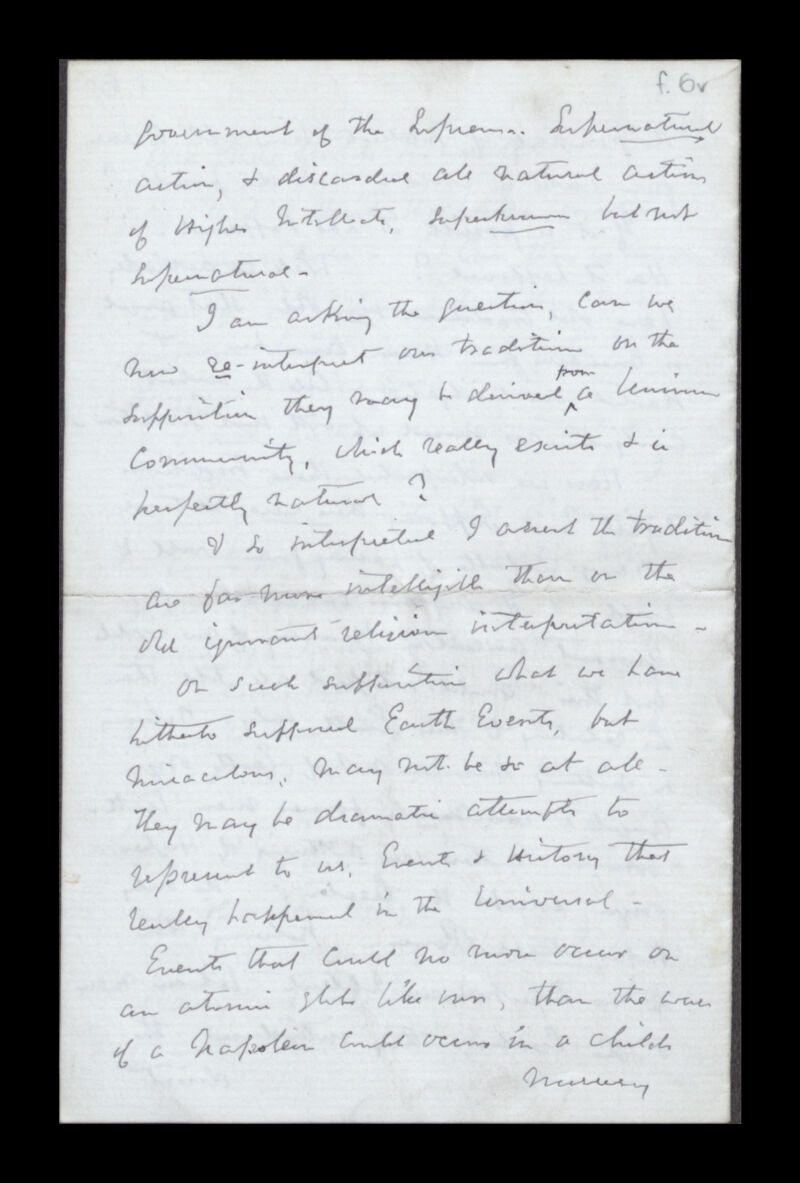 f. 6v
government of the Supreme. Supernatural
action, & discarded all natural actions
of Higher Intellects, superhuman but not
supernatural -
I am asking the question, can we
now re-interpret our traditions on the
supposition they may be derived from a
Community, which really exists & is
perfectly natural?
& so interpreted I assert the traditions
are far more intelligible than on the
old ignorant religious interpretation -
On such supposition what we have
hitherto supposed Earth Events, but
miraculous, may not be so at all -
They may be dramatic attempts to
represent to us, Events & History that
really happened in the Universal -
Events that could no more occur on
an atomic globe like ours, than the wars
of a Napoleon could occur in a childs
nursery